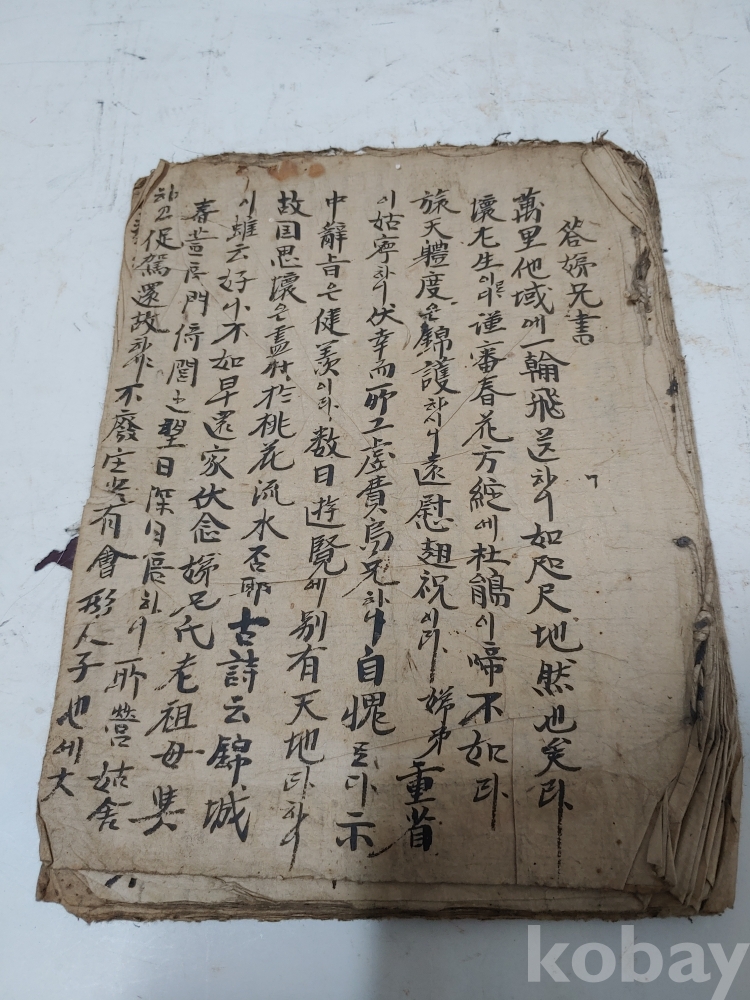 答娣兄書
萬里他域에一輪飛送하니如咫尺地然也矣라
懷尤生이라謹審春花方綻에杜鵑이啼不如라
旅天體度은錦護하시니遠慰翹祝이라娣弟重省
이姑寧하니伏幸而所工虛費烏兄하니自愧로다示
中辭旨은健羨이라数日遊覽에別有天地라하니
故国思懷은盡牡於桃花流水否耶古詩云錦城
이雖云好나不如早還家伏念娣兄氏老祖母與
春萱后門倚閭之望日深日 하니所營姑舍
하고促駕還故 不廢 有會 人子也세大
kobay